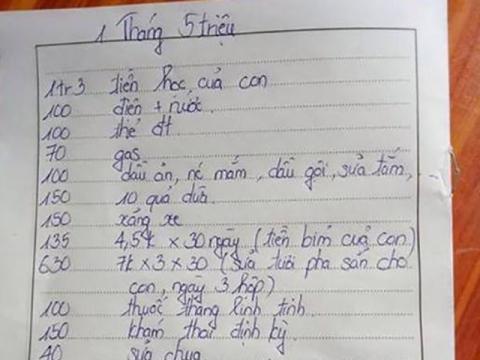 1 Tháng 5 triệu
1tr3 tiền học của con
100 điện + nước.
100 thẻ đt
70 gas
100 dầu ăn, nc mắm, dầu gội, sữa tắm,...
150 10 quả dừa
150 xăng xe
135 4,5k x 30 ngày (tiền bỉm của con)
630 7k x 3 x 30 (sữa tươi pha sẵn cho
con, ngày 3 hộp)
100 thuốc thang linh tinh
150 khám thai định kỳ
40 sữa chua